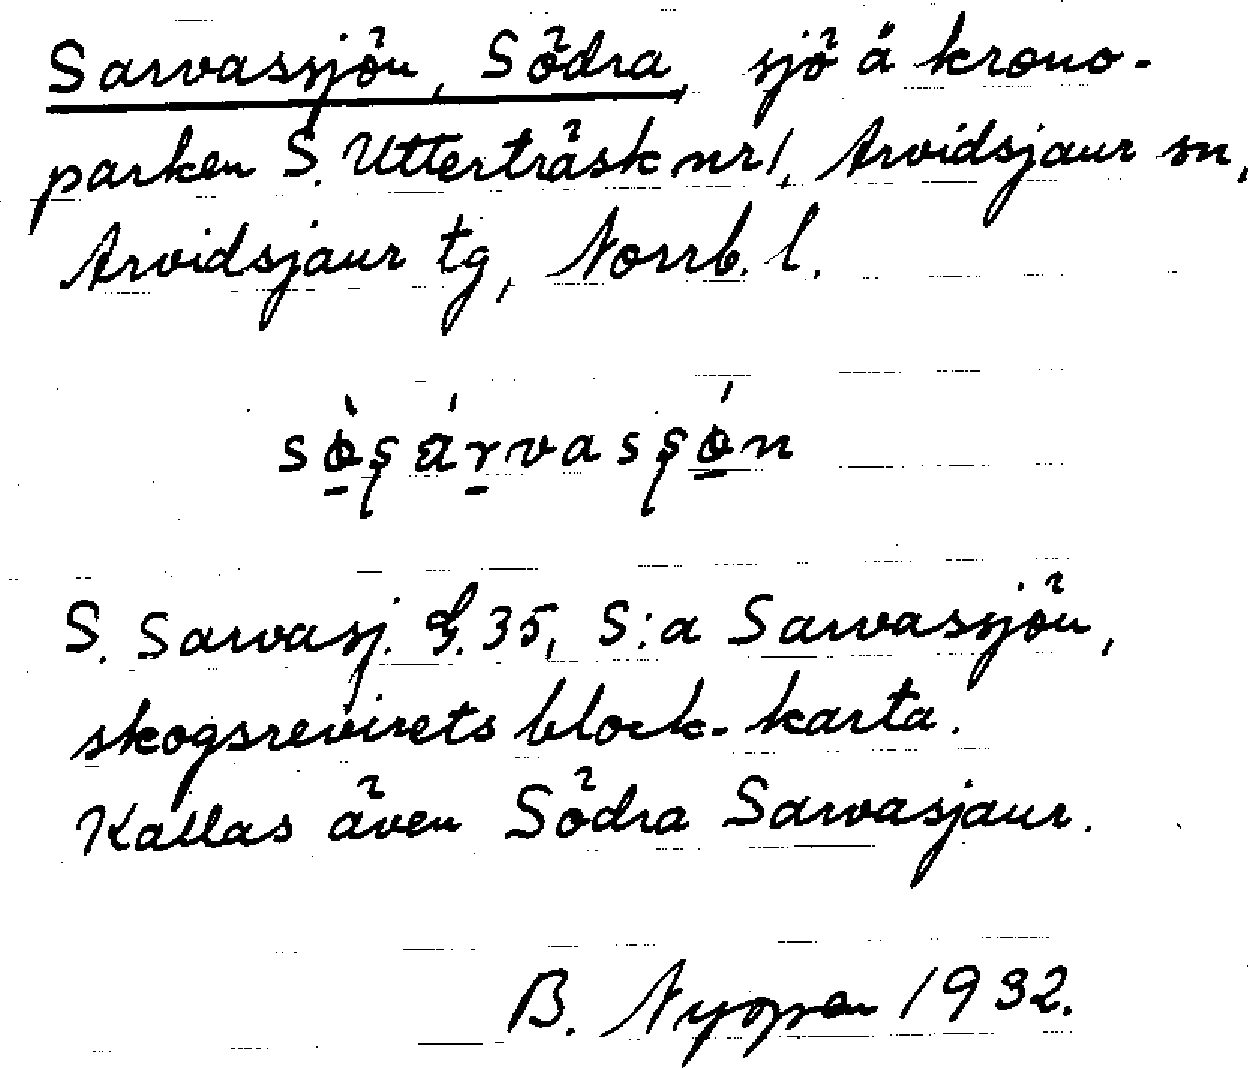 Sarvassjön, Södra, sjö å krono-
parken S. Utterträsk nr 1, Arvidsjaur sn,
Arvidsjaur tg, Norrb. l.
S. Sarvasj. G. 35, S:a Sarvassjön,
skogsrevirets block-karta.
Kallas även Södra Sarvasjaur.
B. 1932.